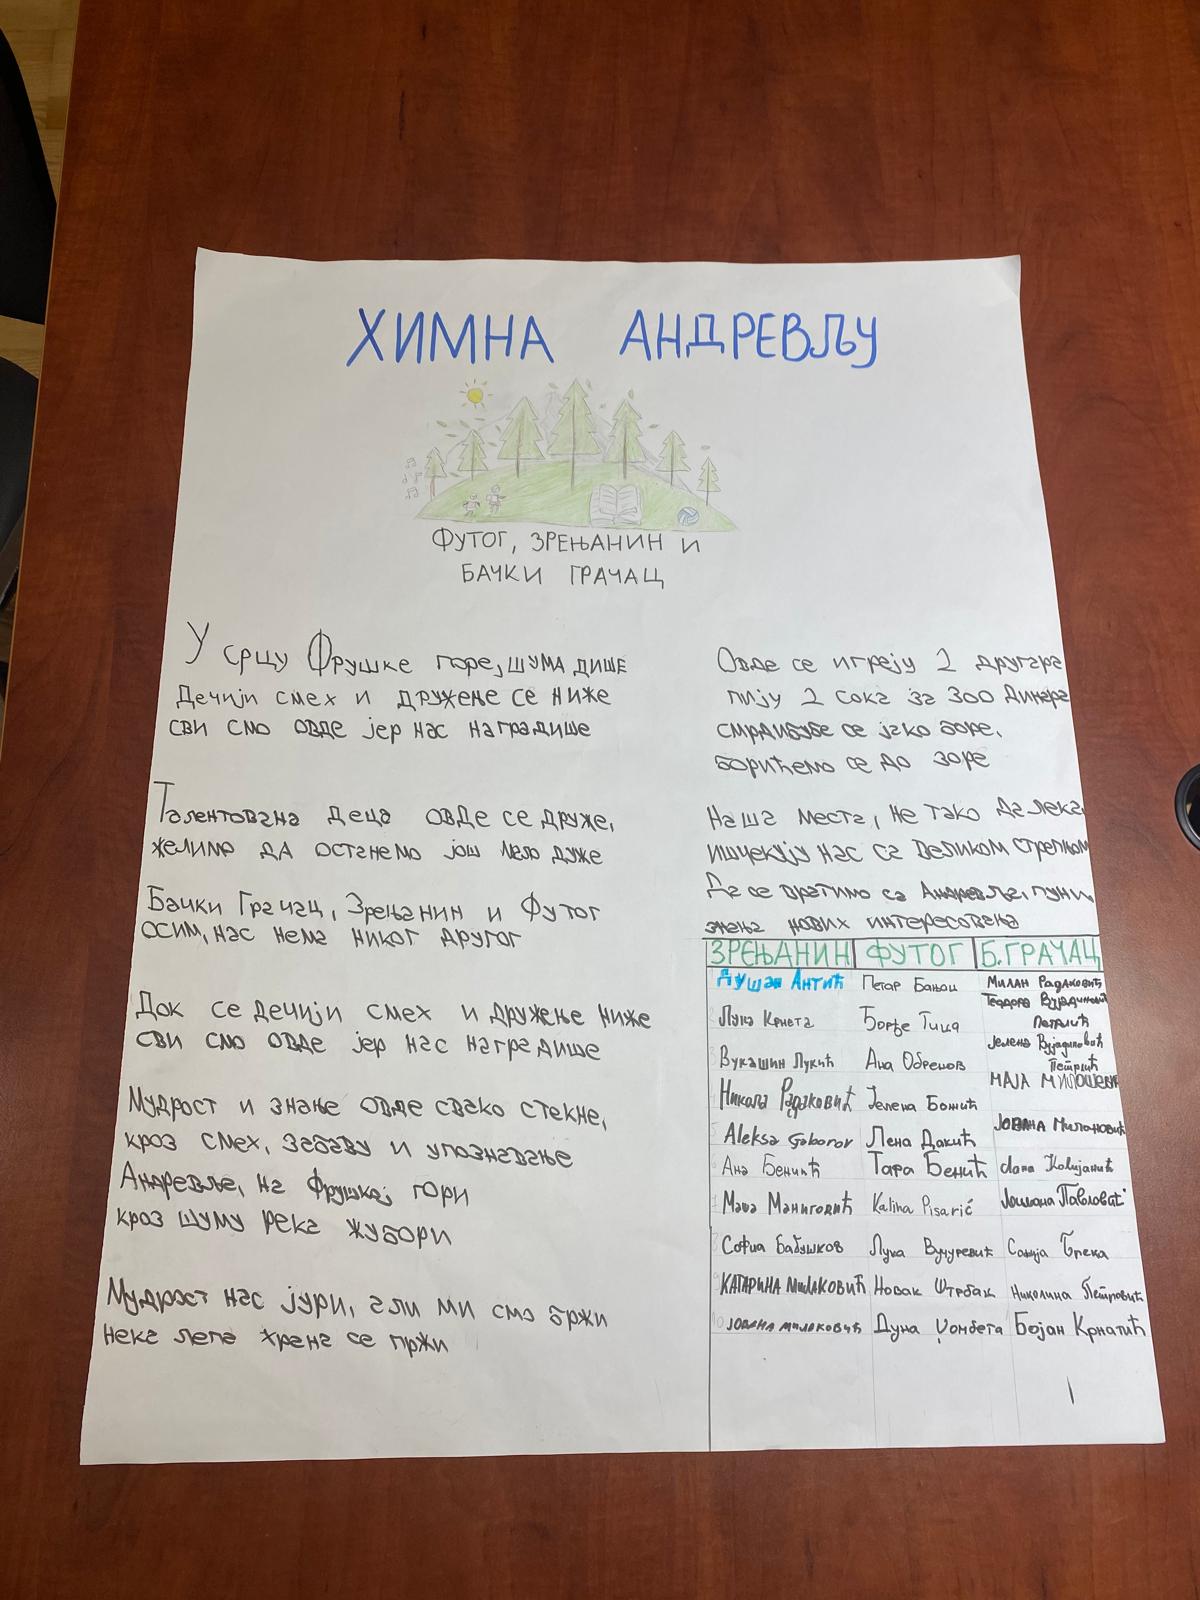 ХИМНА АНДРЕВЉУ
ФУТОГ, ЗРЕЊАНИН И
БАЧКИ ГРАЧАЦ
У срцу Фрушке горе, шума дише
Дечији смех и дружење се ниже
сви смо овде јер нас наградише
Талентована деца овде се друже,
желимо да останемо још мало дуже
Бачки Грачац, Зрењанин и Футог
осим, нас нема никог другог
Док се дечији смех и дружење ниже
сви смо овде јер нас наградише
Мудрост и знање овде свако стекне,
кроз смех, забаву и упознавање
Андревље, на Фрушкој гори
кроз шуму река жубори
Мудрост нас јури, али ми смо бржи
нека лепа храна се пржи
Овде се играју 2 другара
пију 2 сока за 300 динара
смрдибубе се јако боре,
борићемо се до зоре
Наша места, не тако далека
ишчекују нас са великом стрепком
Да се вратимо са Андревља, пуни
знања нових интересовања
ЗРЕЊАНИН ФУТОГ Б.ГРАЧАЦ
Душан Антић Петар Бањои Милан Радаковић
Теодора Вујадиновић
Лука Крнета Ђорђе Тица Петрлић
Јелена Вујадиновић
Вукашин Лукић Ана Обренов Петрлић
Никола Радаковић Јелена Божић МАЈА МИЛОШЕВИЋ
Aleksa Gaborov Лена Дакић Јована Милановић
Ана Бенић Тара Бенић
Маша Маниговић Kalina Pisarić Јошана
Софија Бабушков Лука Вучуревић Санија Брека
КАТАРИНА МИЛАКОВИЋ Новак Штрбак Николина Петровић
ЈОВАНА МИЛАКОВИЋ Дуња Џомбета Бојан Крнатић